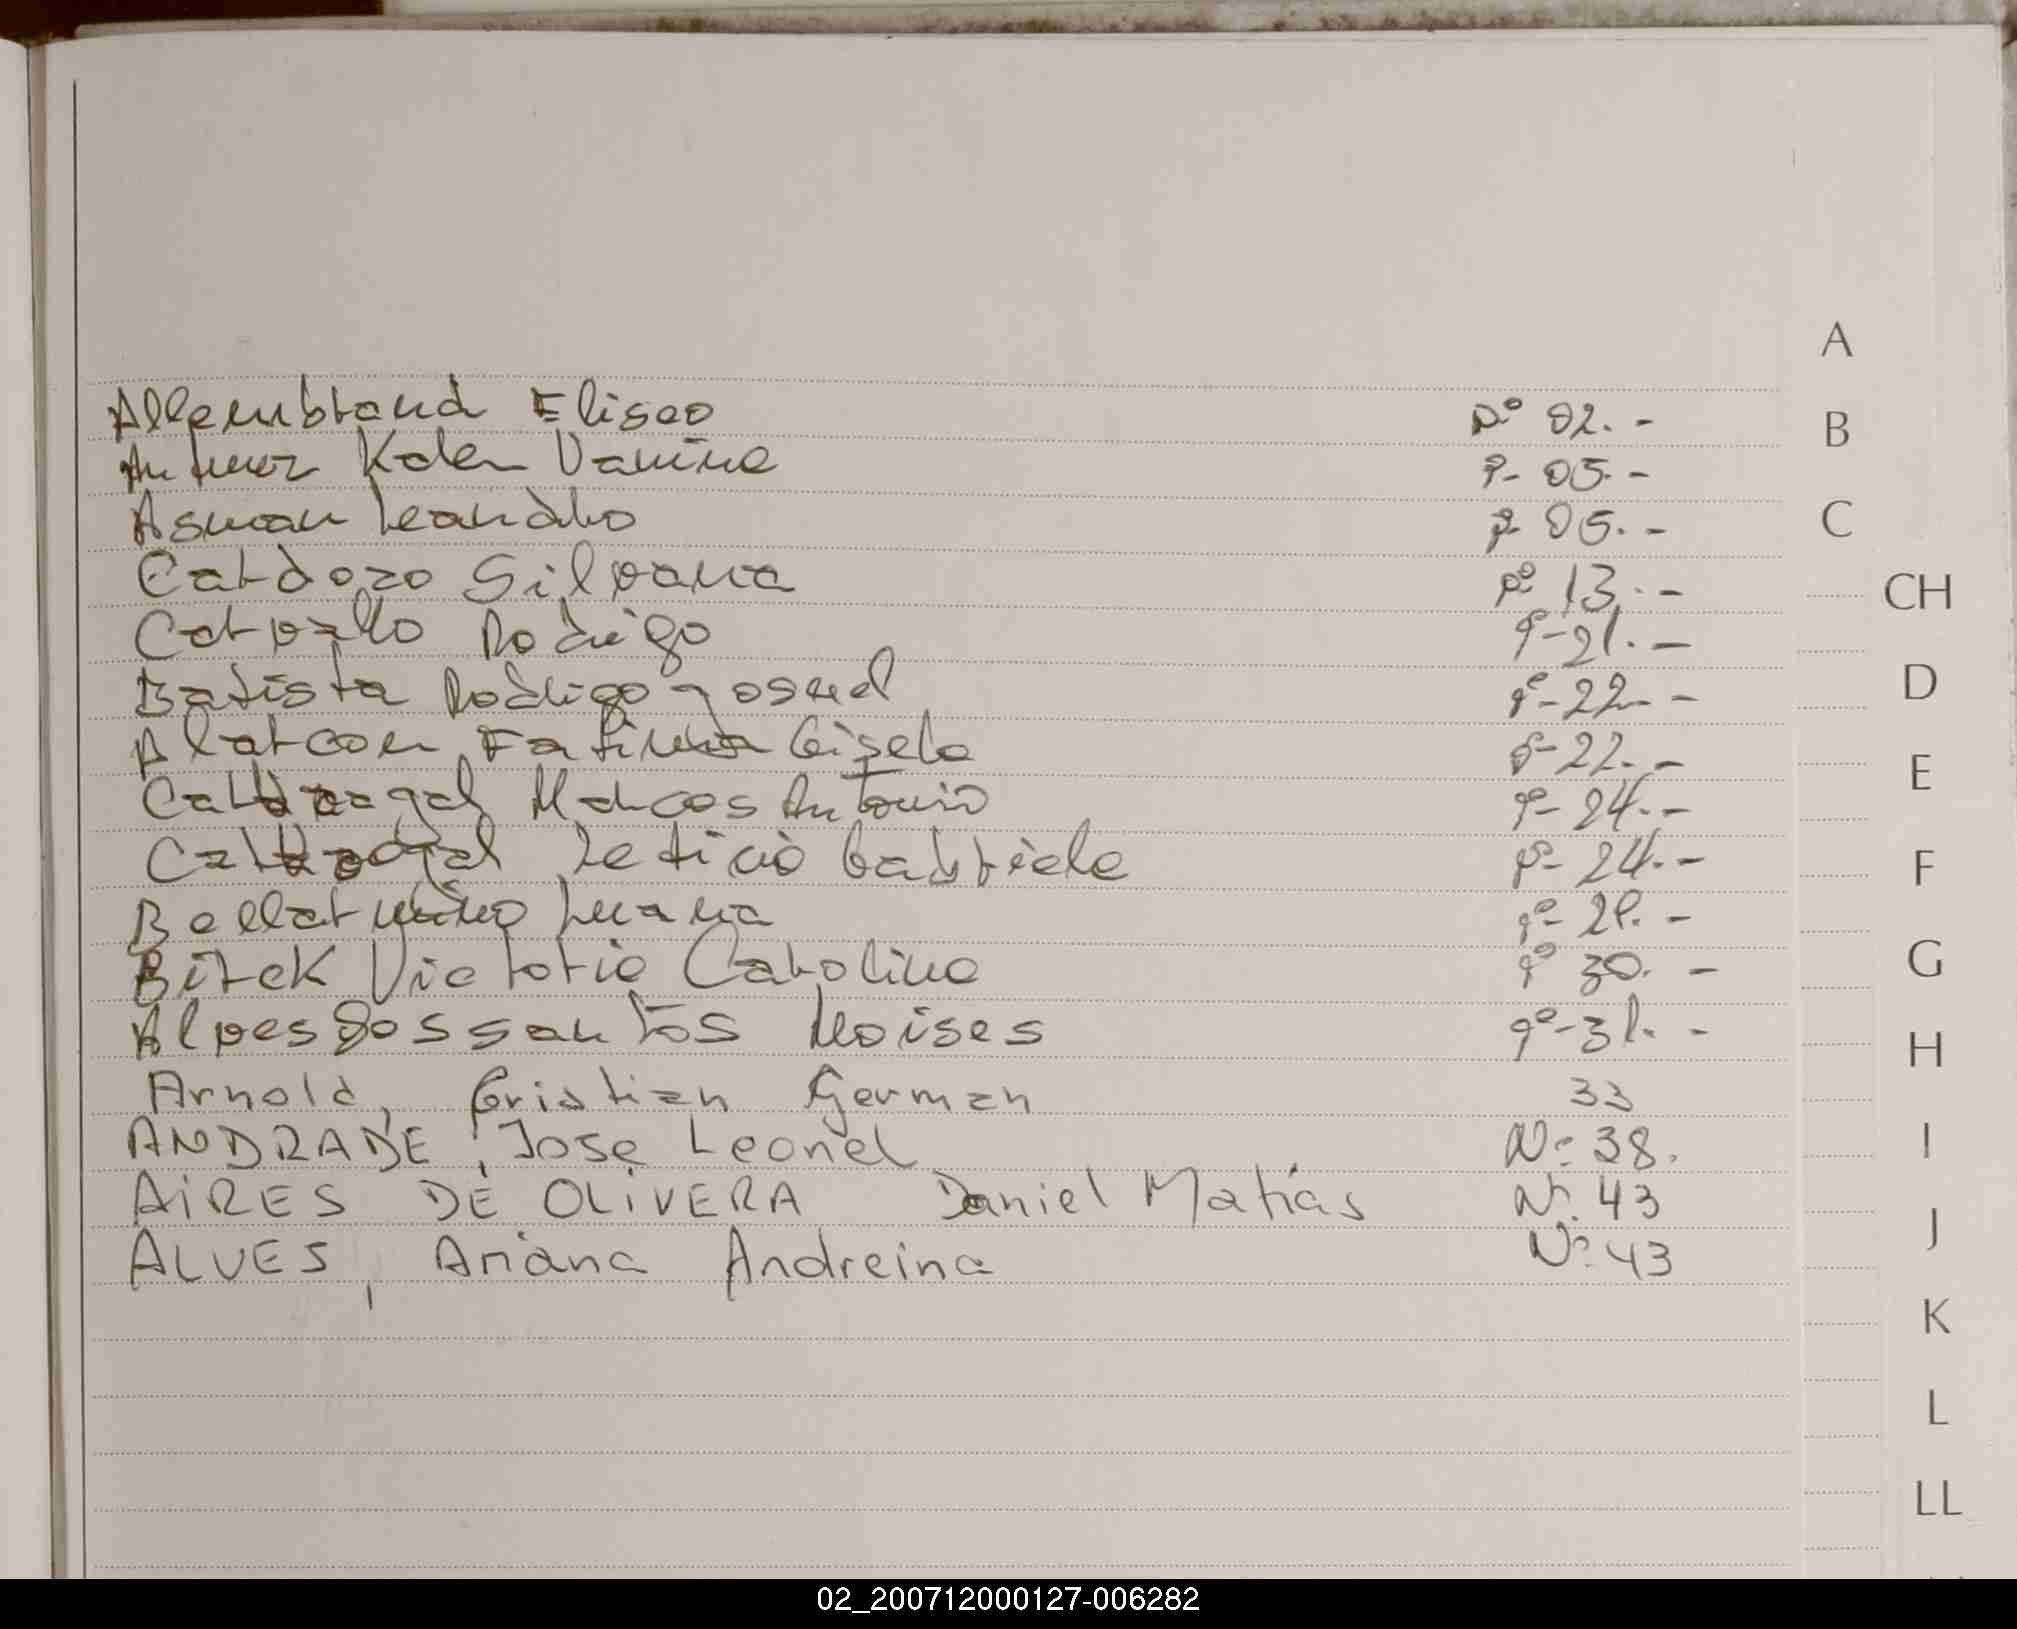 Allembrand Eliseo Nº 02.-
Antunez Karen Vanina P- 05.-
Asman Leandro P- 05.-
Cardozo Silvana Pº 13.-
Carvallo Rodrigo Pº-21.-
Batista Rodrigo Josuel Pº-22.-
Alarcon Fatima Gisela Pº-22.-
Marcos Antonio Pº-24.-
Leticia Gabriela Pº-24.-
Luana Pº-
Bitek Victoria Carolina Pº 30.-
Alves Dos Santos Moises Pº-31.-
Arnold, Cristian German 33
ANDRADE, Jose Leonel Nº 38.
AIRES DE OLIVERA Daniel Matias Nº 43
ALVES, Ariana Andreina Nº 43
A
B
C
CH
D
E
F
G
H
I
J
K
L
LL
02_200712000127-006282